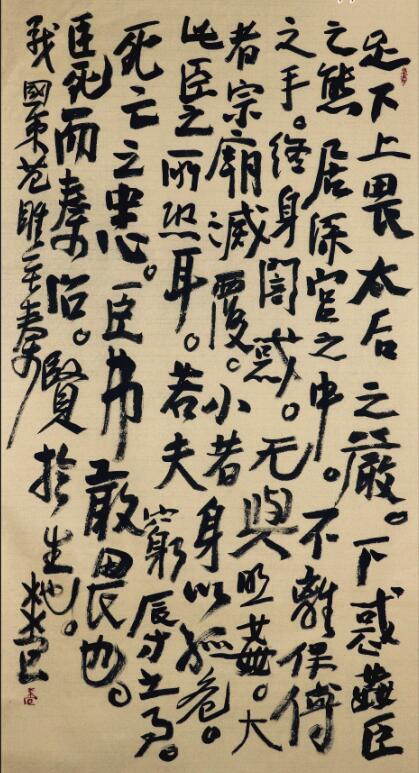 足下上畏太后之嚴。下惑姦臣
之態居深宮之中。不離保傅
之手。終身闇惑。无與姦。大
者宗廟滅覆。小者身以孤危。
此臣之所恐耳。若夫窮辱之事。
死亡之患。臣弗敢畏也。
臣死而秦治。賢於生也。
戰國策范雎至秦